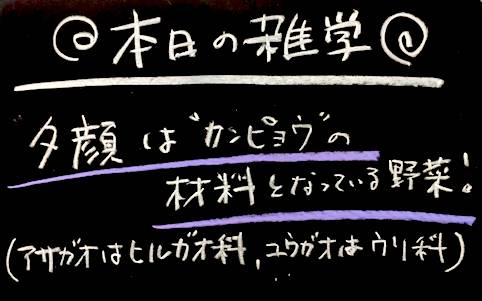 @本日の雑学@
夕顔は"カンピョウ"の
材料となっている野菜!
(アサガオはヒルガオ科,ユウガオはウリ科)